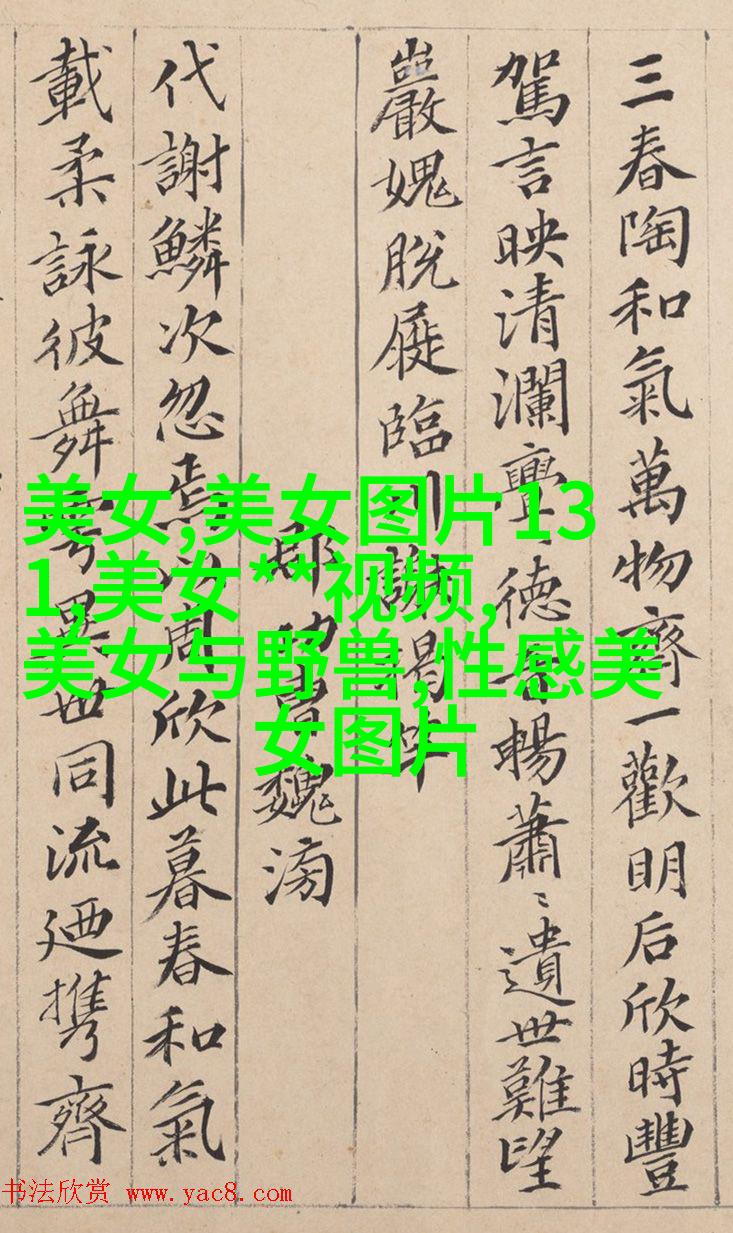 三春陶和氣萬物齊一歡明后欣時豐
駕言映清瀾亹〻德音暢蕭〻遺世難望
巖愧脫屣臨川謝揭竿
郡功曹魏滂
代謝鱗次忽焉以周欣此暮春和氣
載柔詠彼舞雩異世同流廼携齊
美女,美女图片13
1,美女**视频,
美女与野兽,性感美
女图片
书法欣赏 www.yac8.com